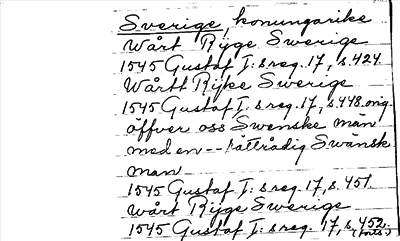 Sverige, konungarike
Wårt Rijge Swerige
1545 Gustaf I: s reg. 17, s. 424.
Wårtt Rijke Swerige
1545 Gustaf I. s reg. 17, s. 448. orig.
öffver oss Swenske män
med en -- rättrådig Swänsk
man
1545 Gustaf I: s reg. 17, s. 451.
Wårt Rijge Swerige
1545 Gustaf I: s reg. 17, s. 452.
(forts.)